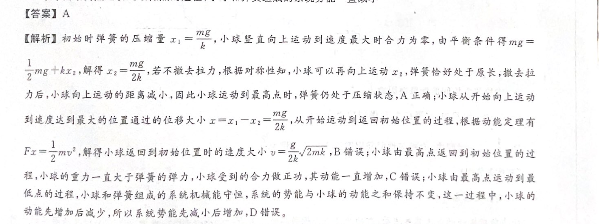 【答案】A
【解析】初始时弹簧的压缩量 x₁=mg/k,小球竖直向上运动到速度最大时合力为零,由平衡条件得mg=
1/2mg+kx₂,解得 x₂=mg/2k,若不撤去拉力,根据对称性知,小球可以再向上运动 x₂,弹簧恰好处于原长,撤去拉
力后,小球向上运动的距离减小,因此小球运动到最高点时,弹簧仍处于压缩状态,A 正确;小球从开始向上运动
到速度达到最大的位置通过的位移大小 x=x₁-x₂=mg/2k,从开始运动到返回初始位置的过程,根据动能定理有
Fx=1/2mv²,解得小球返回到初始位置时的速度大小 v=g/2k√2mk,B 错误;小球由最高点返回到初始位置的过
程,小球的重力一直大于弹簧的弹力,小球受到的合力做正功,其动能一直增加,C 错误;小球由最高点运动到最
低点的过程,小球和弹簧组成的系统机械能守恒,系统的势能与小球的动能之和保持不变,这一过程中,小球的
动能先增加后减少,所以系统势能先减小后增加,D 错误。